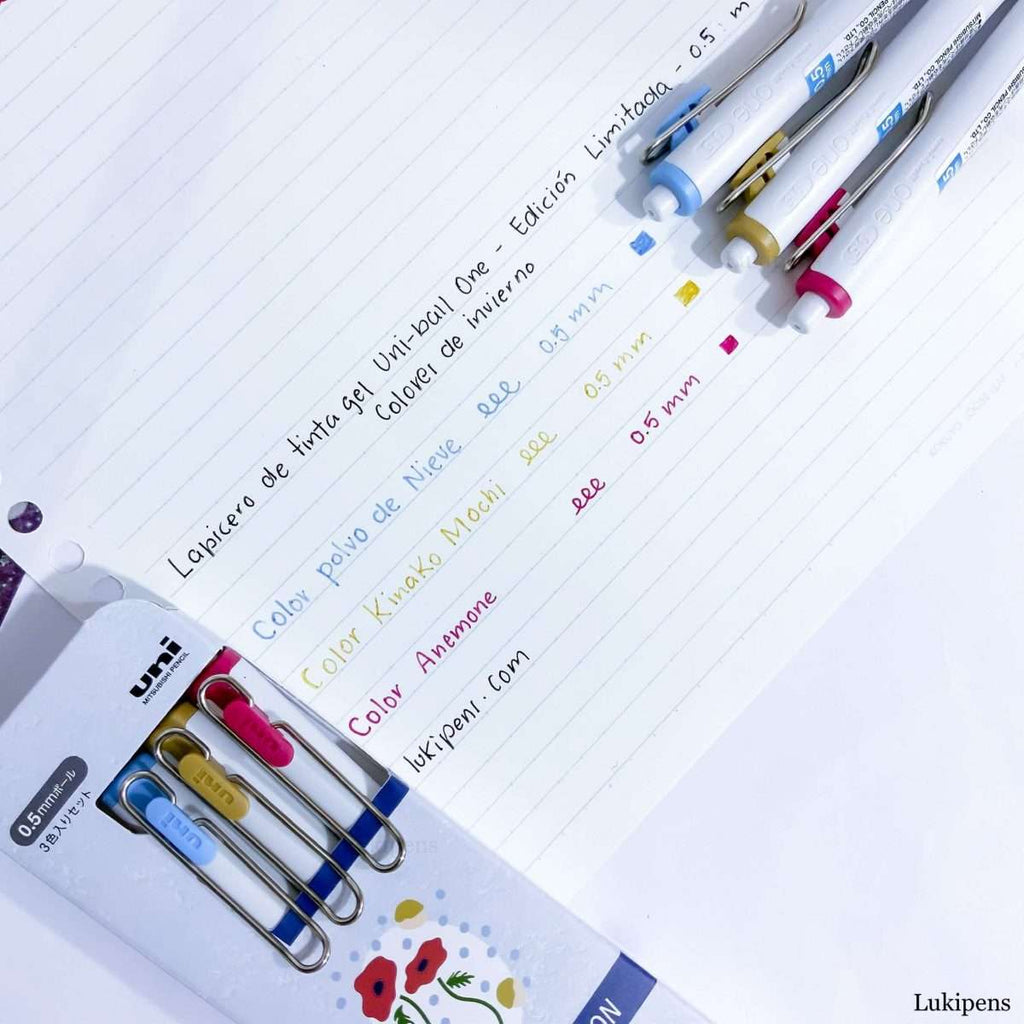 Lapicero de tinta gel Uni-ball One - Edición Limitada - 0.5 m
Colores de invierno
Color polvo de Nieve eee 0.5 mm
Color Kinako Mochi eee 0.5 mm
Color Anemone eee 0.5 mm
lukipens.com
uni
MITSUBISHI PENCIL
0.5mmボール
3色入りセット
uni
uni
uni
MITSUBISHI PENCIL CO., LTD.
one
one
one
ION
Lukipens